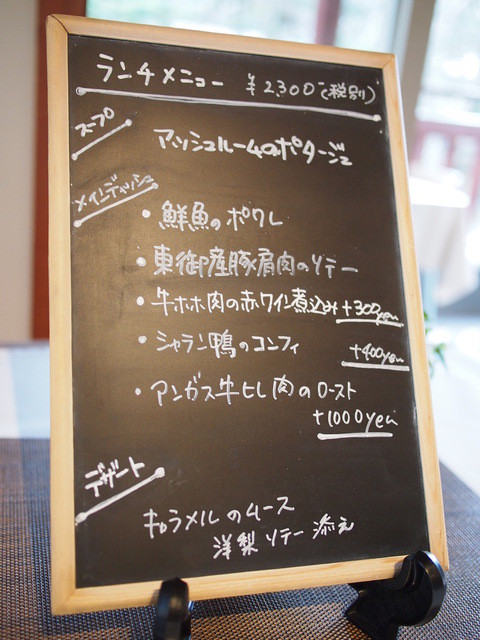 ランチメニュー ¥2,300(税別)
スープ
マッシュルームのポタージュ
メインディッシュ
・鮮魚のポワレ
・東御産豚肩肉のソテー
・牛ホホ肉の赤ワイン煮込み +300yen
・シャラン鴨のコンフィ +400yen
・アンガス牛ヒレ肉のロースト
+1000yen
デザート
キャラメルのムース
洋梨ソテー添え